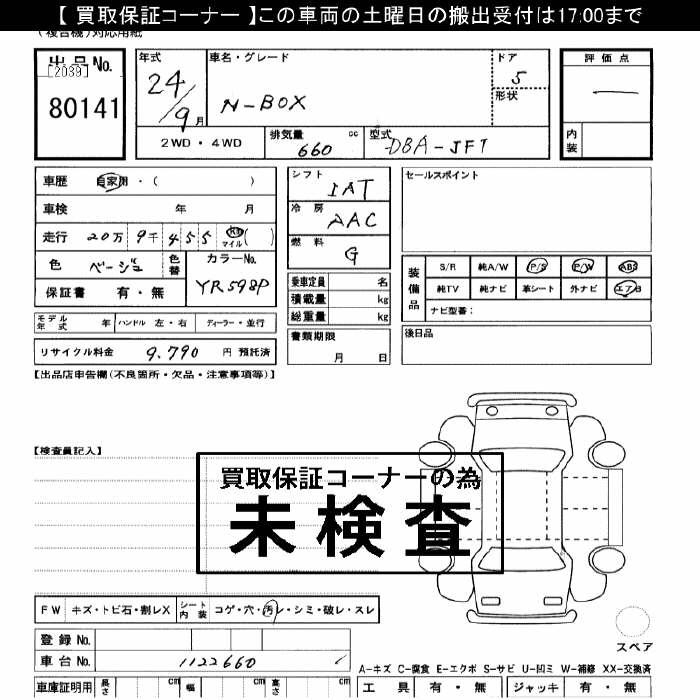 【 買取保証コーナー 】この車両の土曜日の搬出受付は17:00まで
(複合機)対応用紙
出品No.
[2039]
80141
年式
24/9月
車名・グレード
N-BOX
ドア
5
形状
評価点
―
内装
2WD・4WD
排気量
660 cc
型式
DBA-JF1
車歴 自家用・( )
車検 年 月
走行 20万 9千 4 5 5 km マイル ( )
色 ベージュ 色替
カラーNo.
YR598P
保証書 有・無
シフト
IAT
冷房
AAC
燃料
G
乗車定員 名
積載量 kg
総重量 kg
セールスポイント
装備品
S/R 純A/W P/S P/W ABS
純TV 純ナビ 革シート 外ナビ エアB
ナビ型番:
モデル年式 年 ハンドル 左・右 ディーラー・並行
リサイクル料金 9.790 円 預託済
書類期限
月 日
後日品
【出品店申告欄(不良箇所・欠品・注意事項等)】
【検査員記入】
買取保証コーナーの為
未検査
FW キズ・トビ石・割レX シート内装 コゲ・穴・汚レ・シミ・破レ・スレ
登録No.
車台No. 1122660
スペア
A-キズ C-腐食 E-エクボ S-サビ U-凹ミ W-補修 XX-交換済
車庫証明用 長さ cm 幅 cm 高さ cm
工具 有・無 ジャッキ 有・無